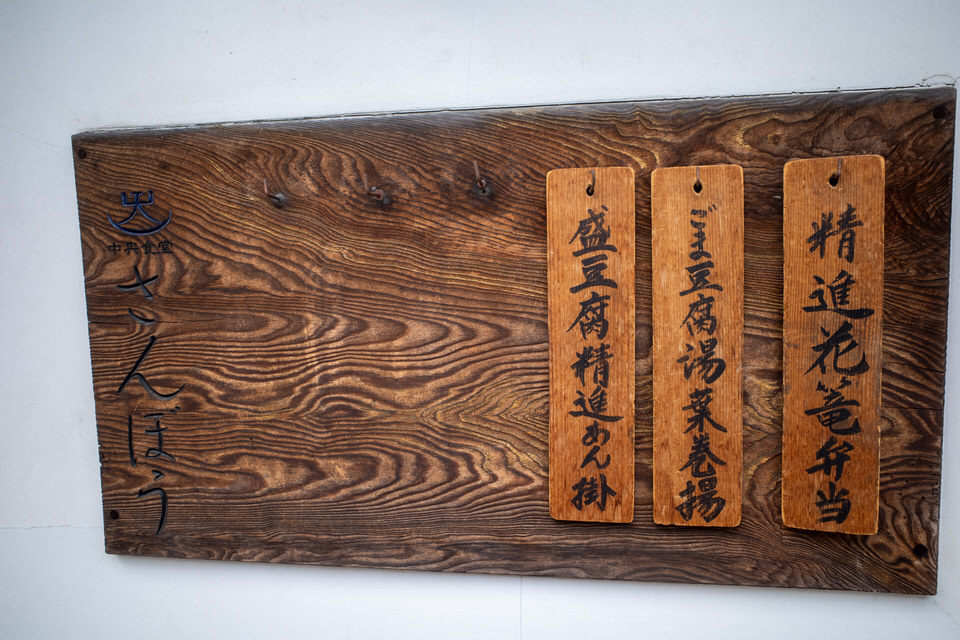 精進花篭弁当
ごま豆腐湯葉巻揚
盛豆腐精進あん掛
中央食堂
さんぼう